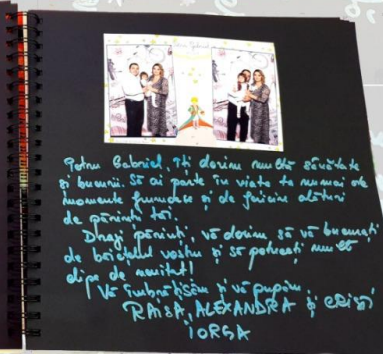 Petru Gabriel, îți dorim multă sănătate
și bucurii. Să ai parte în viața ta numai de
momente frumoase și de fericire alături
de părinții tăi.
Dragi părinți, vă dorim să vă bucurați
de băiețelul vostru și să petreceți multe
clipe de neuitat!
Vă îmbrățișăm și vă pupăm,
RAISA, ALEXANDRA și CRISTI
IORGA